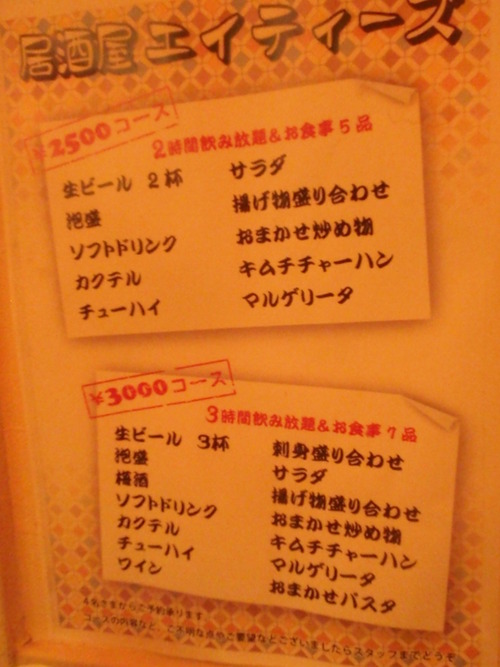 居酒屋 エイティーズ
¥2500コース
2時間飲み放題&お食事5品
生ビール 2杯
泡盛
ソフトドリンク
カクテル
チューハイ
サラダ
揚げ物盛り合わせ
おまかせ炒め物
キムチチャーハン
マルゲリータ
¥3000コース
3時間飲み放題&お食事7品
生ビール 3杯
泡盛
梅酒
ソフトドリンク
カクテル
チューハイ
ワイン
刺身盛り合わせ
サラダ
揚げ物盛り合わせ
おまかせ炒め物
キムチチャーハン
マルゲリータ
おまかせパスタ
4名さまからご予約承ります
コースの内容など、ご不明な点やご要望などございましたらスタッフまでどうぞ